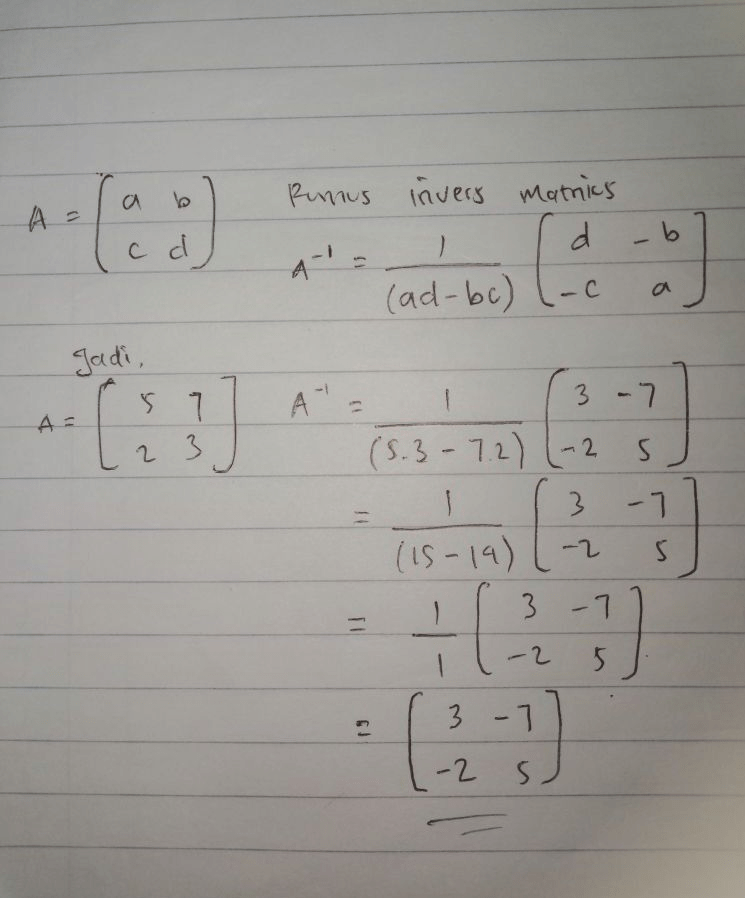 A = [a b; c d] Rumus invers Matriks
A⁻¹ = 1/(ad-bc) [d -b; -c a]
Jadi,
A = [5 7; 2 3] A⁻¹ = 1/(5.3 - 7.2) [3 -7; -2 5]
= 1/(15-14) [3 -7; -2 5]
= 1/1 [3 -7; -2 5]
= [3 -7; -2 5]